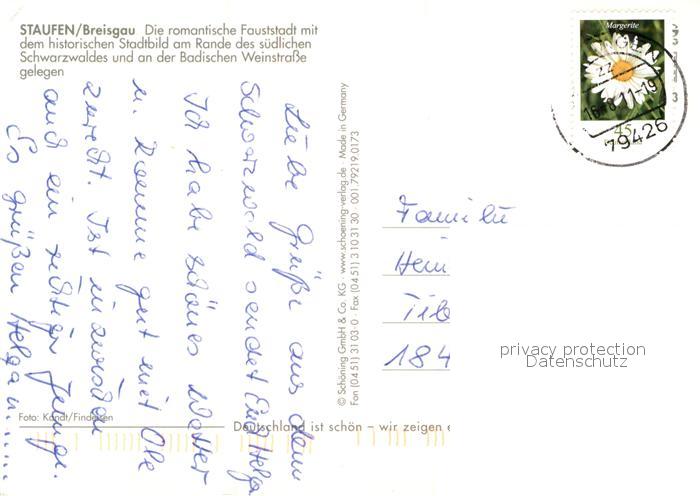 STAUFEN/Breisgau Die romantische Fauststadt mit
dem historischen Stadtbild am Rande des südlichen
Schwarzwaldes und an der Badischen Weinstraße
gelegen
Liebe Grüße aus dem
Schwarzwald sendet Euch Helga
Ich habe schönes Wetter
u. komme gut mit Ole
zurecht. Ist inzwischen
auch ein richtiger Junge.
Es grüßen Helga u.......
© Schöning GmbH & Co. KG · www.schoening-verlag.de · Made in Germany
Fon (04 51) 31 03-0 · Fax (04 51) 3 10 31 30 · 001.79219.0173
Margerite
45
79426
Familie
Hein
Tib
184
privacy protection
Datenschutz
Foto: Kandt/Findeisen
Deutschland ist schön – wir zeigen e